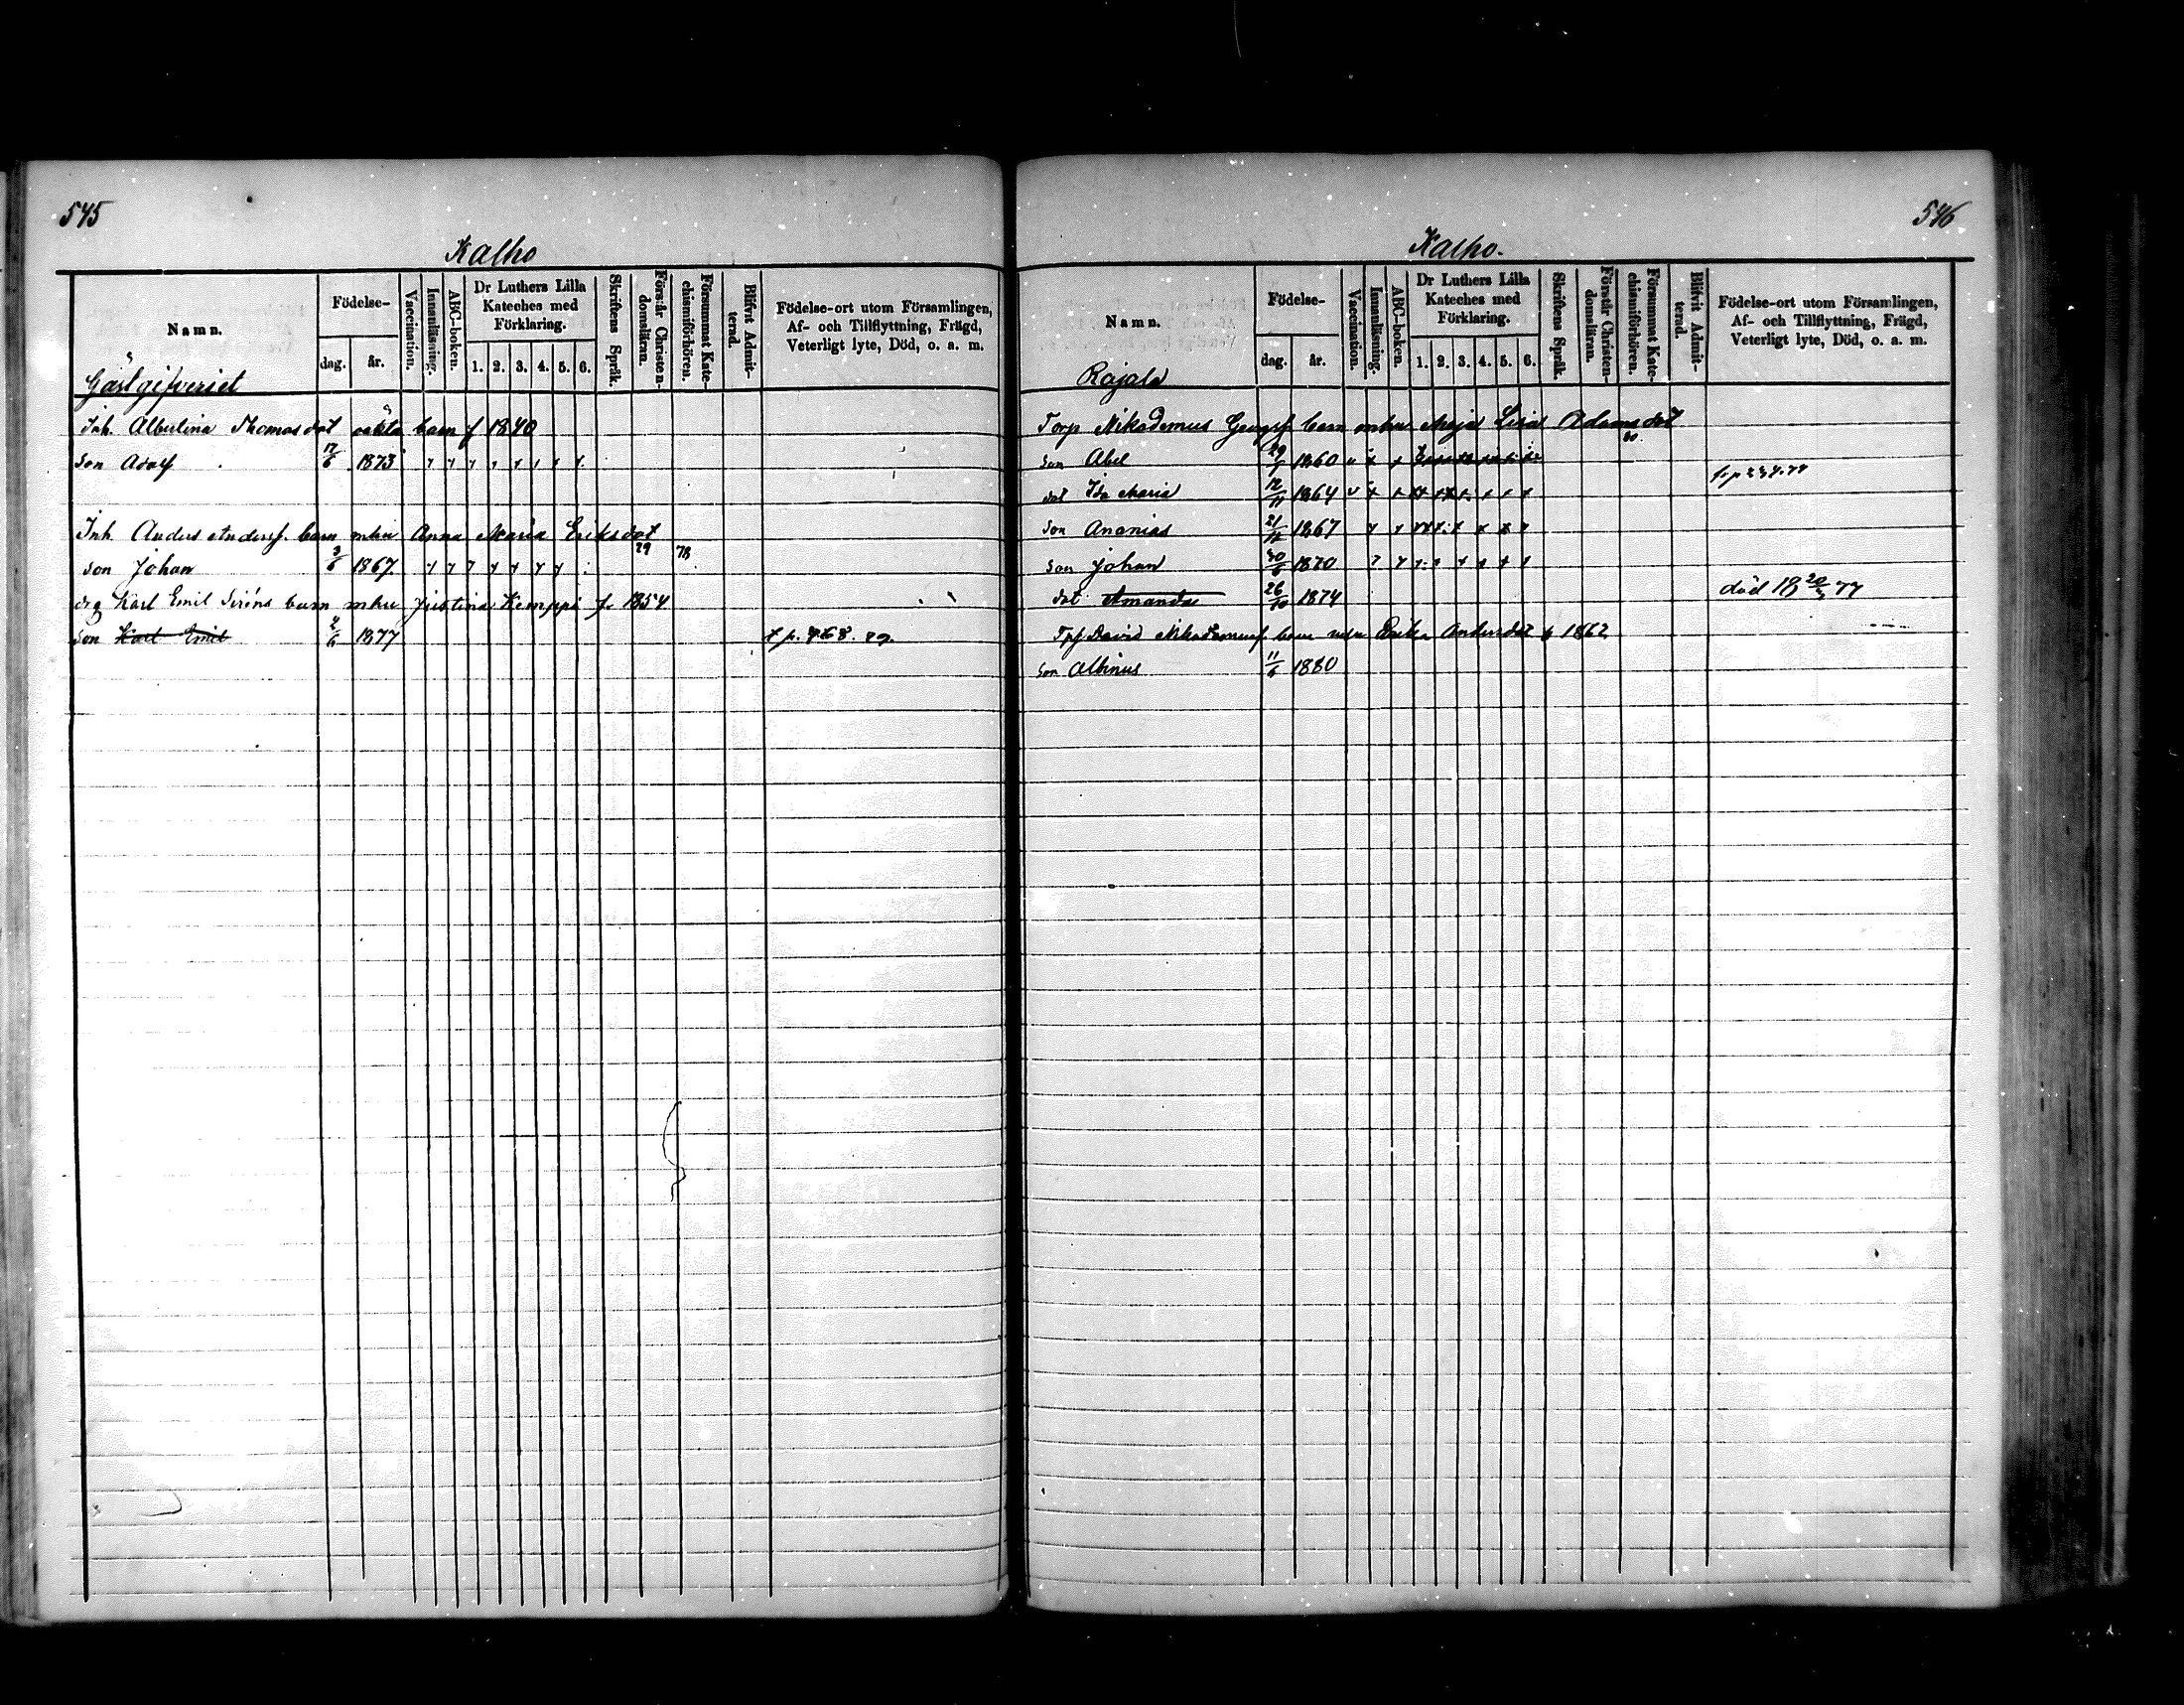 545
Kalho
Namn.
Födelse-
dag.
år.
Vaccination.
Innanläsning.
ABC-boken.
Dr Luthers Lilla
Kateches med
Förklaring.
1. 2. 3. 4. 5. 6.
Skriftens Språk.
Förstår Christen-
domsläran.
Försummat Kate-
chismiförhören.
Blifvit Admit-
terad.
Födelse-ort utom Församlingen,
Af- och Tillflyttning, Frägd,
Veterligt lyte, Död, o. a. m.
Gästgifveriet
Inh. Albertina Thomasdot oäkta barn f 1840
Son Adolf 17/6 1873
Inh. Anders Andersf. barn mhu Anna Maria Eriksdot
29 78
Son Johan 3/6 1867
drg Karl Emil Siréns barn mhu Justina Kemppi f. 1854
Son Karl Emil 2/6 1877
546
Kalho.
Namn.
Födelse-
dag.
år.
Vaccination.
Innanläsning.
ABC-boken.
Dr Luthers Lilla
Kateches med
Förklaring.
1. 2. 3. 4. 5. 6.
Skriftens Språk.
Förstår Christen-
domsläran.
Försummat Kate-
chismiförhören.
Blifvit Admit-
terad.
Födelse-ort utom Församlingen,
Af- och Tillflyttning, Frägd,
Veterligt lyte, Död, o. a. m.
Rajala
Torp Nikodemus barn mhu Maja Lisa Adamsdot
Son Abel 1860
dot Ida Maria 12/11 1864
Son Ananias 1867
Son Johan 30/6 1870
dot Amanda 26/10 1874 död 18 77
David barn mhu Erika Andersdot f 1862
Son Albinus 11/6 1880